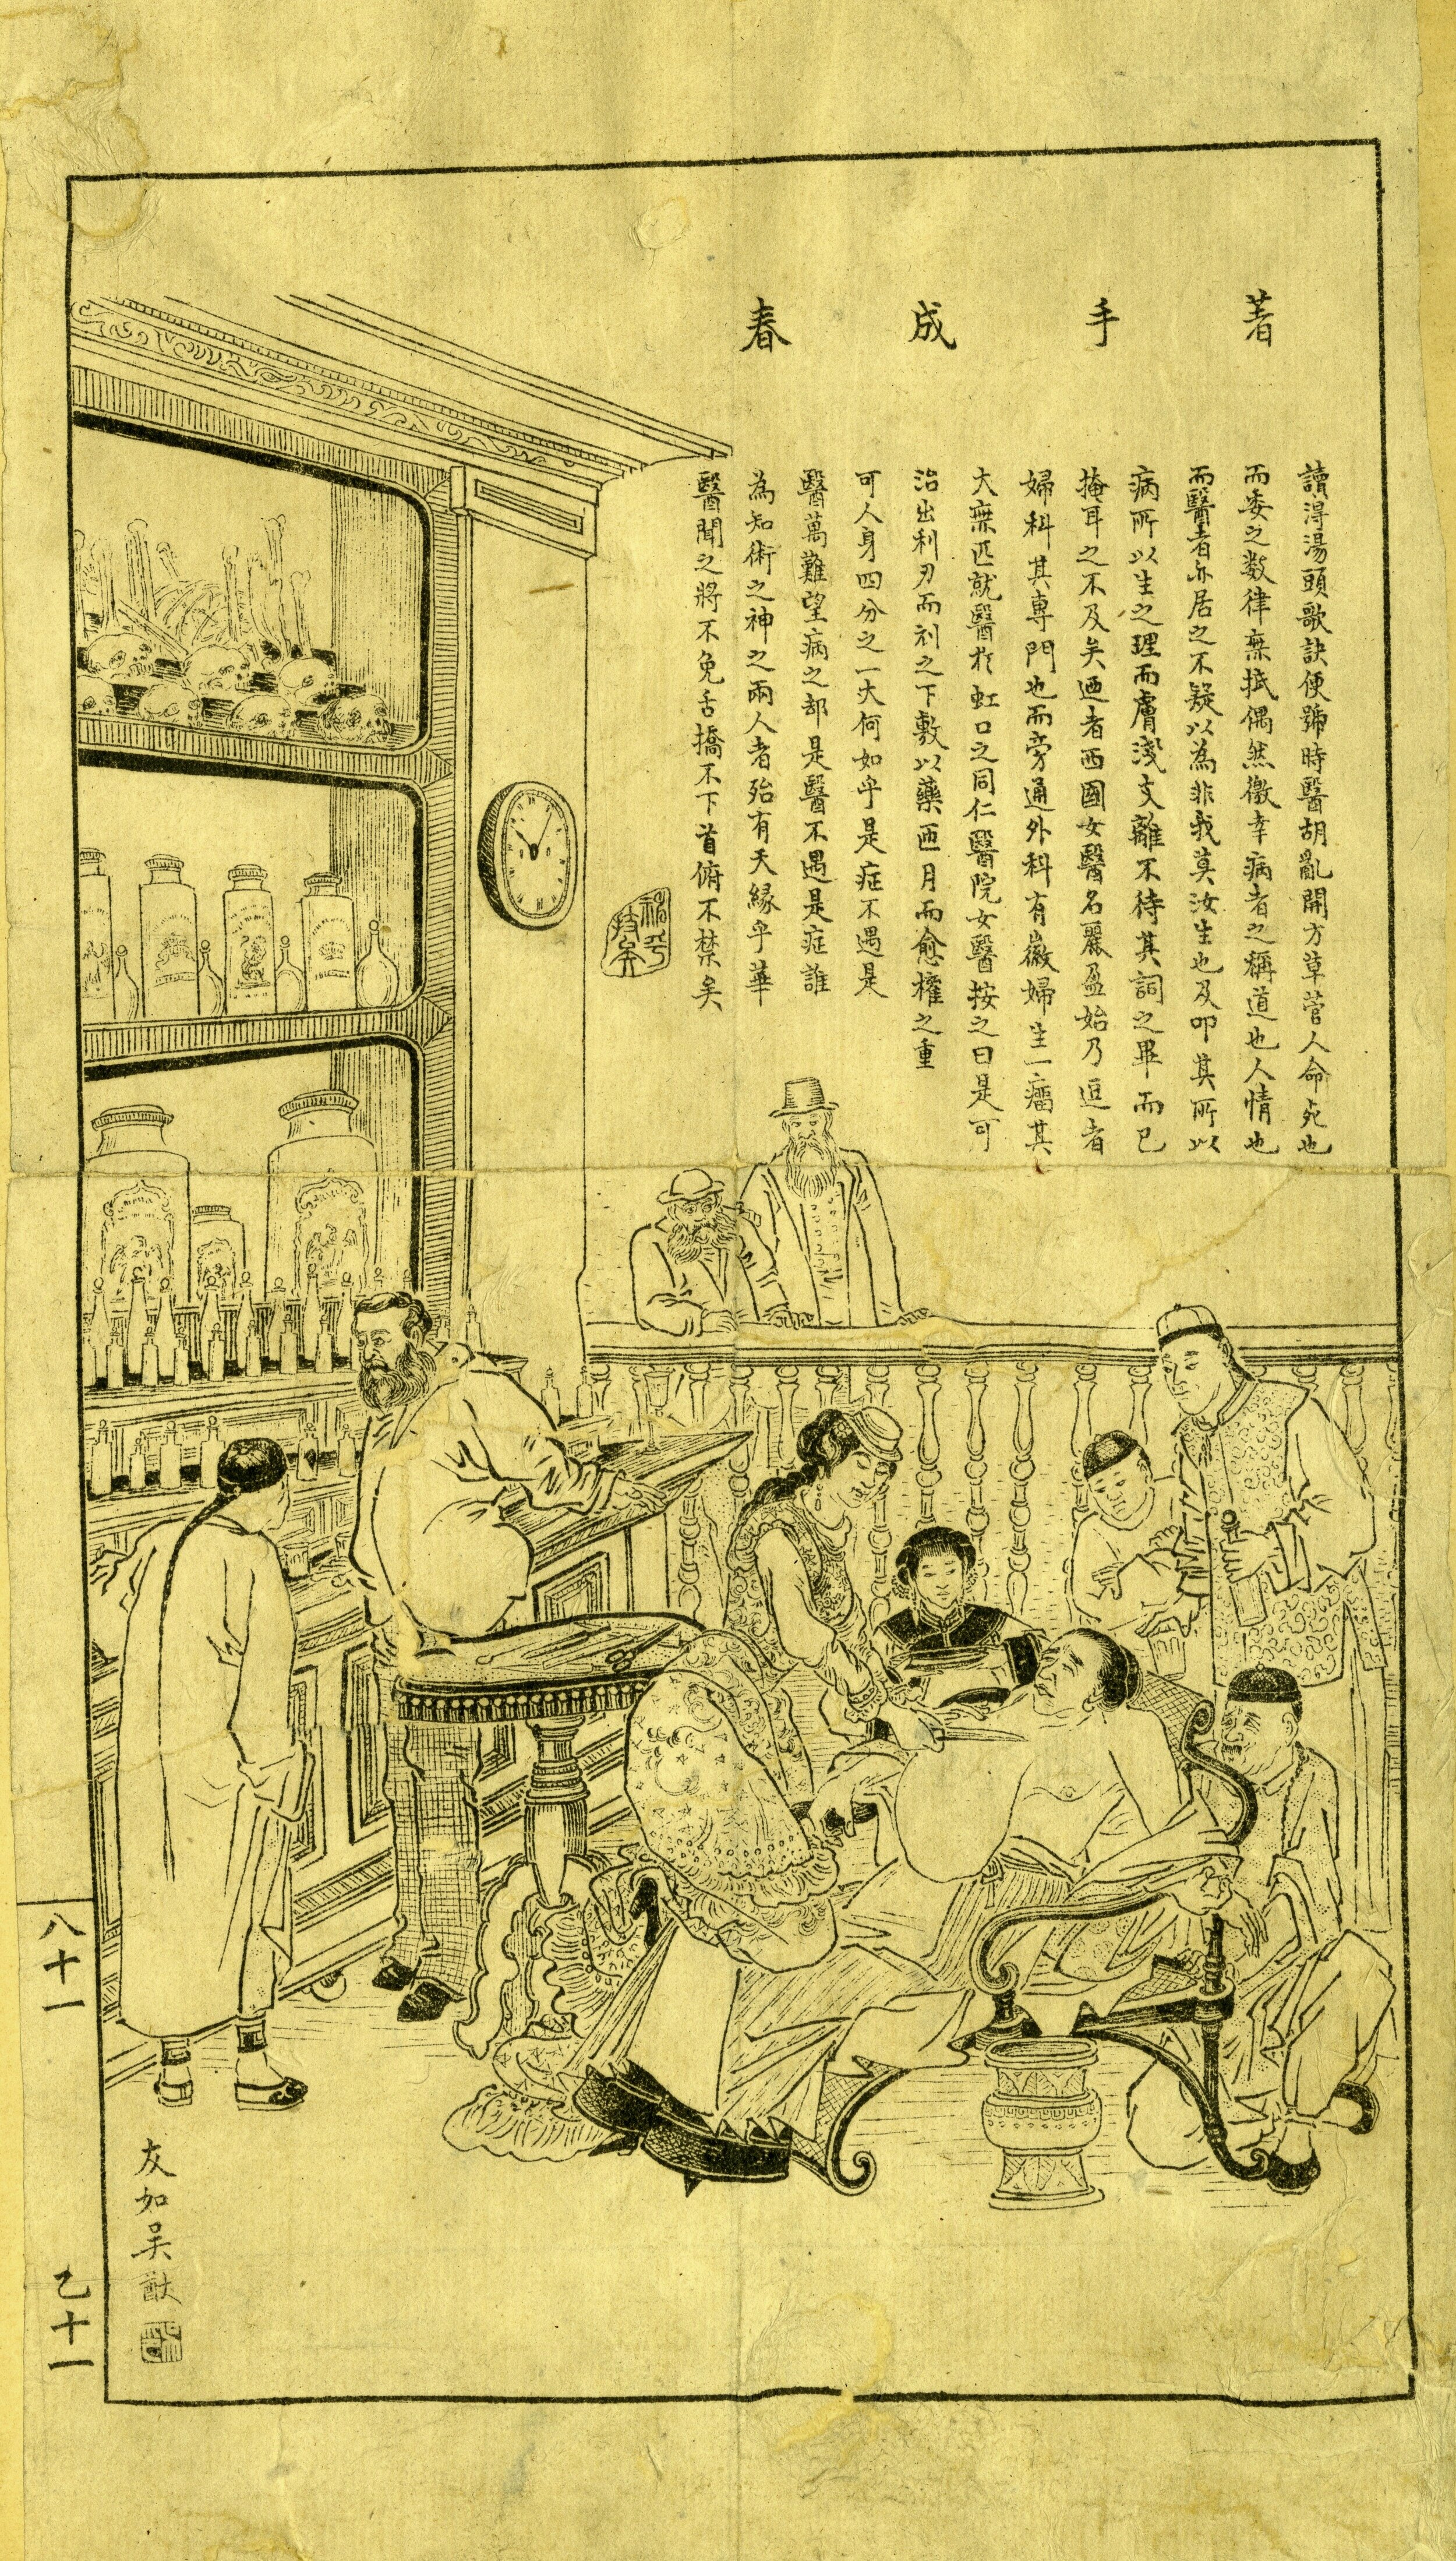 著手成春
讀得湯頭歌訣便號時醫胡亂開方草菅人命宛也
而委之数律無抵偶然徼幸病者之稱道也人情也
而醫者亦居之不疑以為非我莫汝生也及叩其所以
病所以生之理而膚淺支離不待其詞之畢而已
掩耳之不及矣迺者西國女醫名麗盈始乃逗者
婦科其專門也而旁通外科有徽婦生一瘤其
大無匹就醫於虹口之同仁醫院女醫按之曰是可
治出利刃而刲之下敷以藥匝月而愈權之重
可人身四分之一大何如乎是症不遇是
醫萬難望病之却是醫不遇是症誰
為知術之神之兩人者殆有天緣乎華
醫聞之將不免舌撟不下首俯不禁矣
友如吳猷
八十一
乙十一